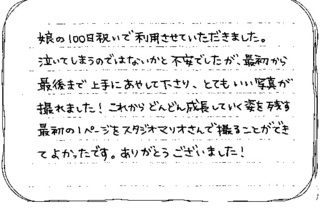 娘の100日祝いで利用させていただきました。
泣いてしまうのではないかと不安でしたが、最初から
最後まで上手にあやして下さり、とてもいい写真が
撮れました！これからどんどん成長していく姿を残す
最初の1ページをスタジオマリオさんで撮ることができ
てよかったです。ありがとうございました！